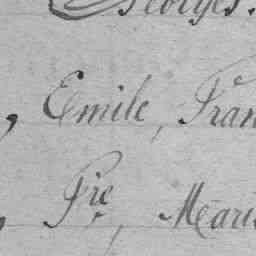 Georges.
, Emile, Fran
, Pie, Marie